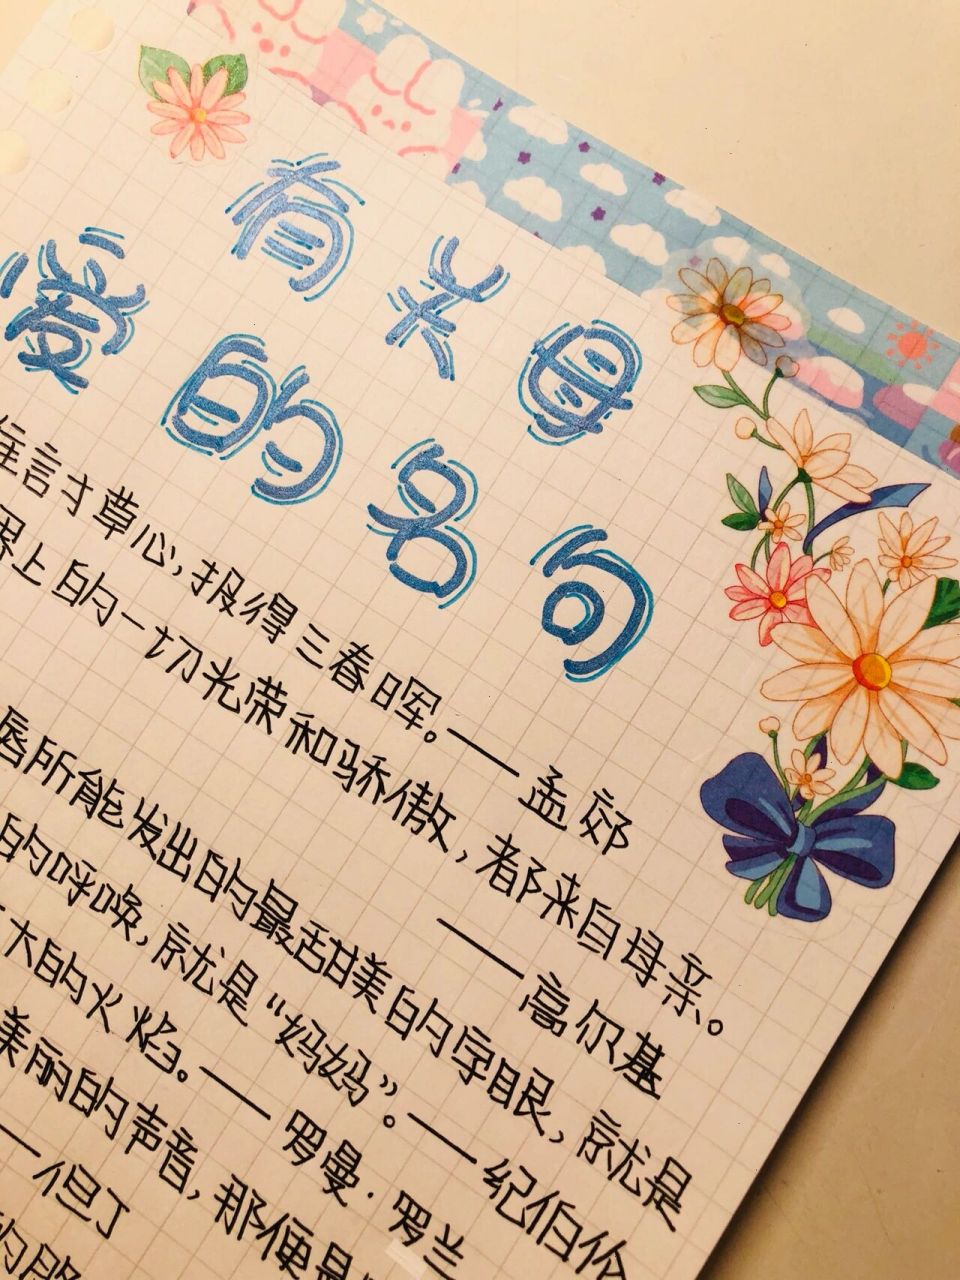 有关母
爱的名句
言寸草心，报得三春晖。——孟郊
界上的一切光荣和骄傲，都来自母亲。
——高尔基
唇所能发出的最甜美的字眼，就是
的呼唤，就是“妈妈”。——纪伯伦
大的火焰。——罗曼·罗兰
美丽的声音，那便是
——但丁
的